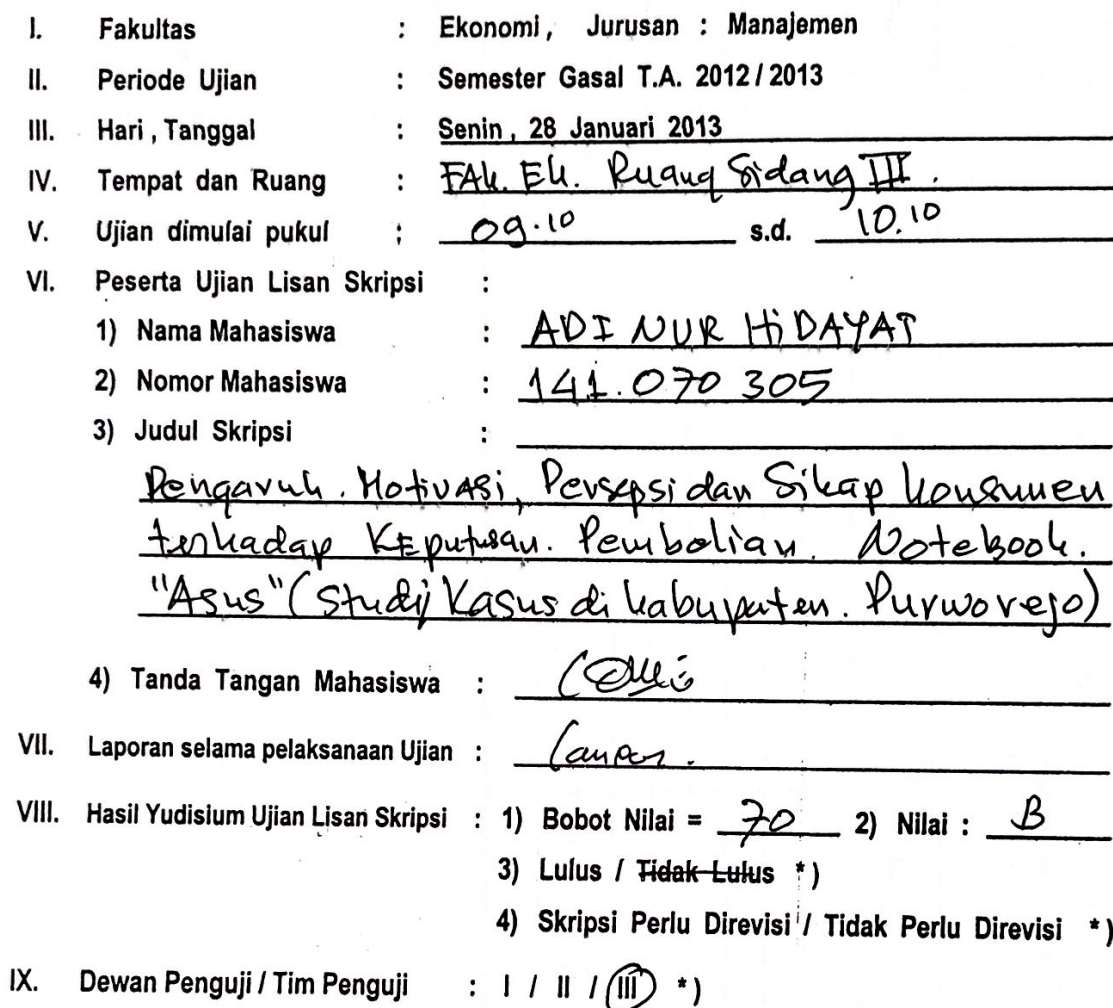 I. Fakultas : Ekonomi, Jurusan : Manajemen
II. Periode Ujian : Semester Gasal T.A. 2012 / 2013
III. Hari , Tanggal : Senin , 28 Januari 2013
IV. Tempat dan Ruang : FAk. Ek. Ruang Sidang III.
V. Ujian dimulai pukul : 09.10 s.d. 10.10
VI. Peserta Ujian Lisan Skripsi :
1) Nama Mahasiswa : ADI NUR HiDAYAT
2) Nomor Mahasiswa : 141.070 305
3) Judul Skripsi :
Pengaruh. Motivasi, Persepsi dan Sikap konsumen
terhadap Keputusan. Pembelian. Notebook.
"Asus" (Studi Kasus di kabupaten. Purworejo)
4) Tanda Tangan Mahasiswa :
VII. Laporan selama pelaksanaan Ujian : Lancar.
VIII. Hasil Yudisium Ujian Lisan Skripsi : 1) Bobot Nilai = 70 2) Nilai : B
3) Lulus / Tidak Lulus *)
4) Skripsi Perlu Direvisi / Tidak Perlu Direvisi *)
IX. Dewan Penguji / Tim Penguji : I / II / III *)